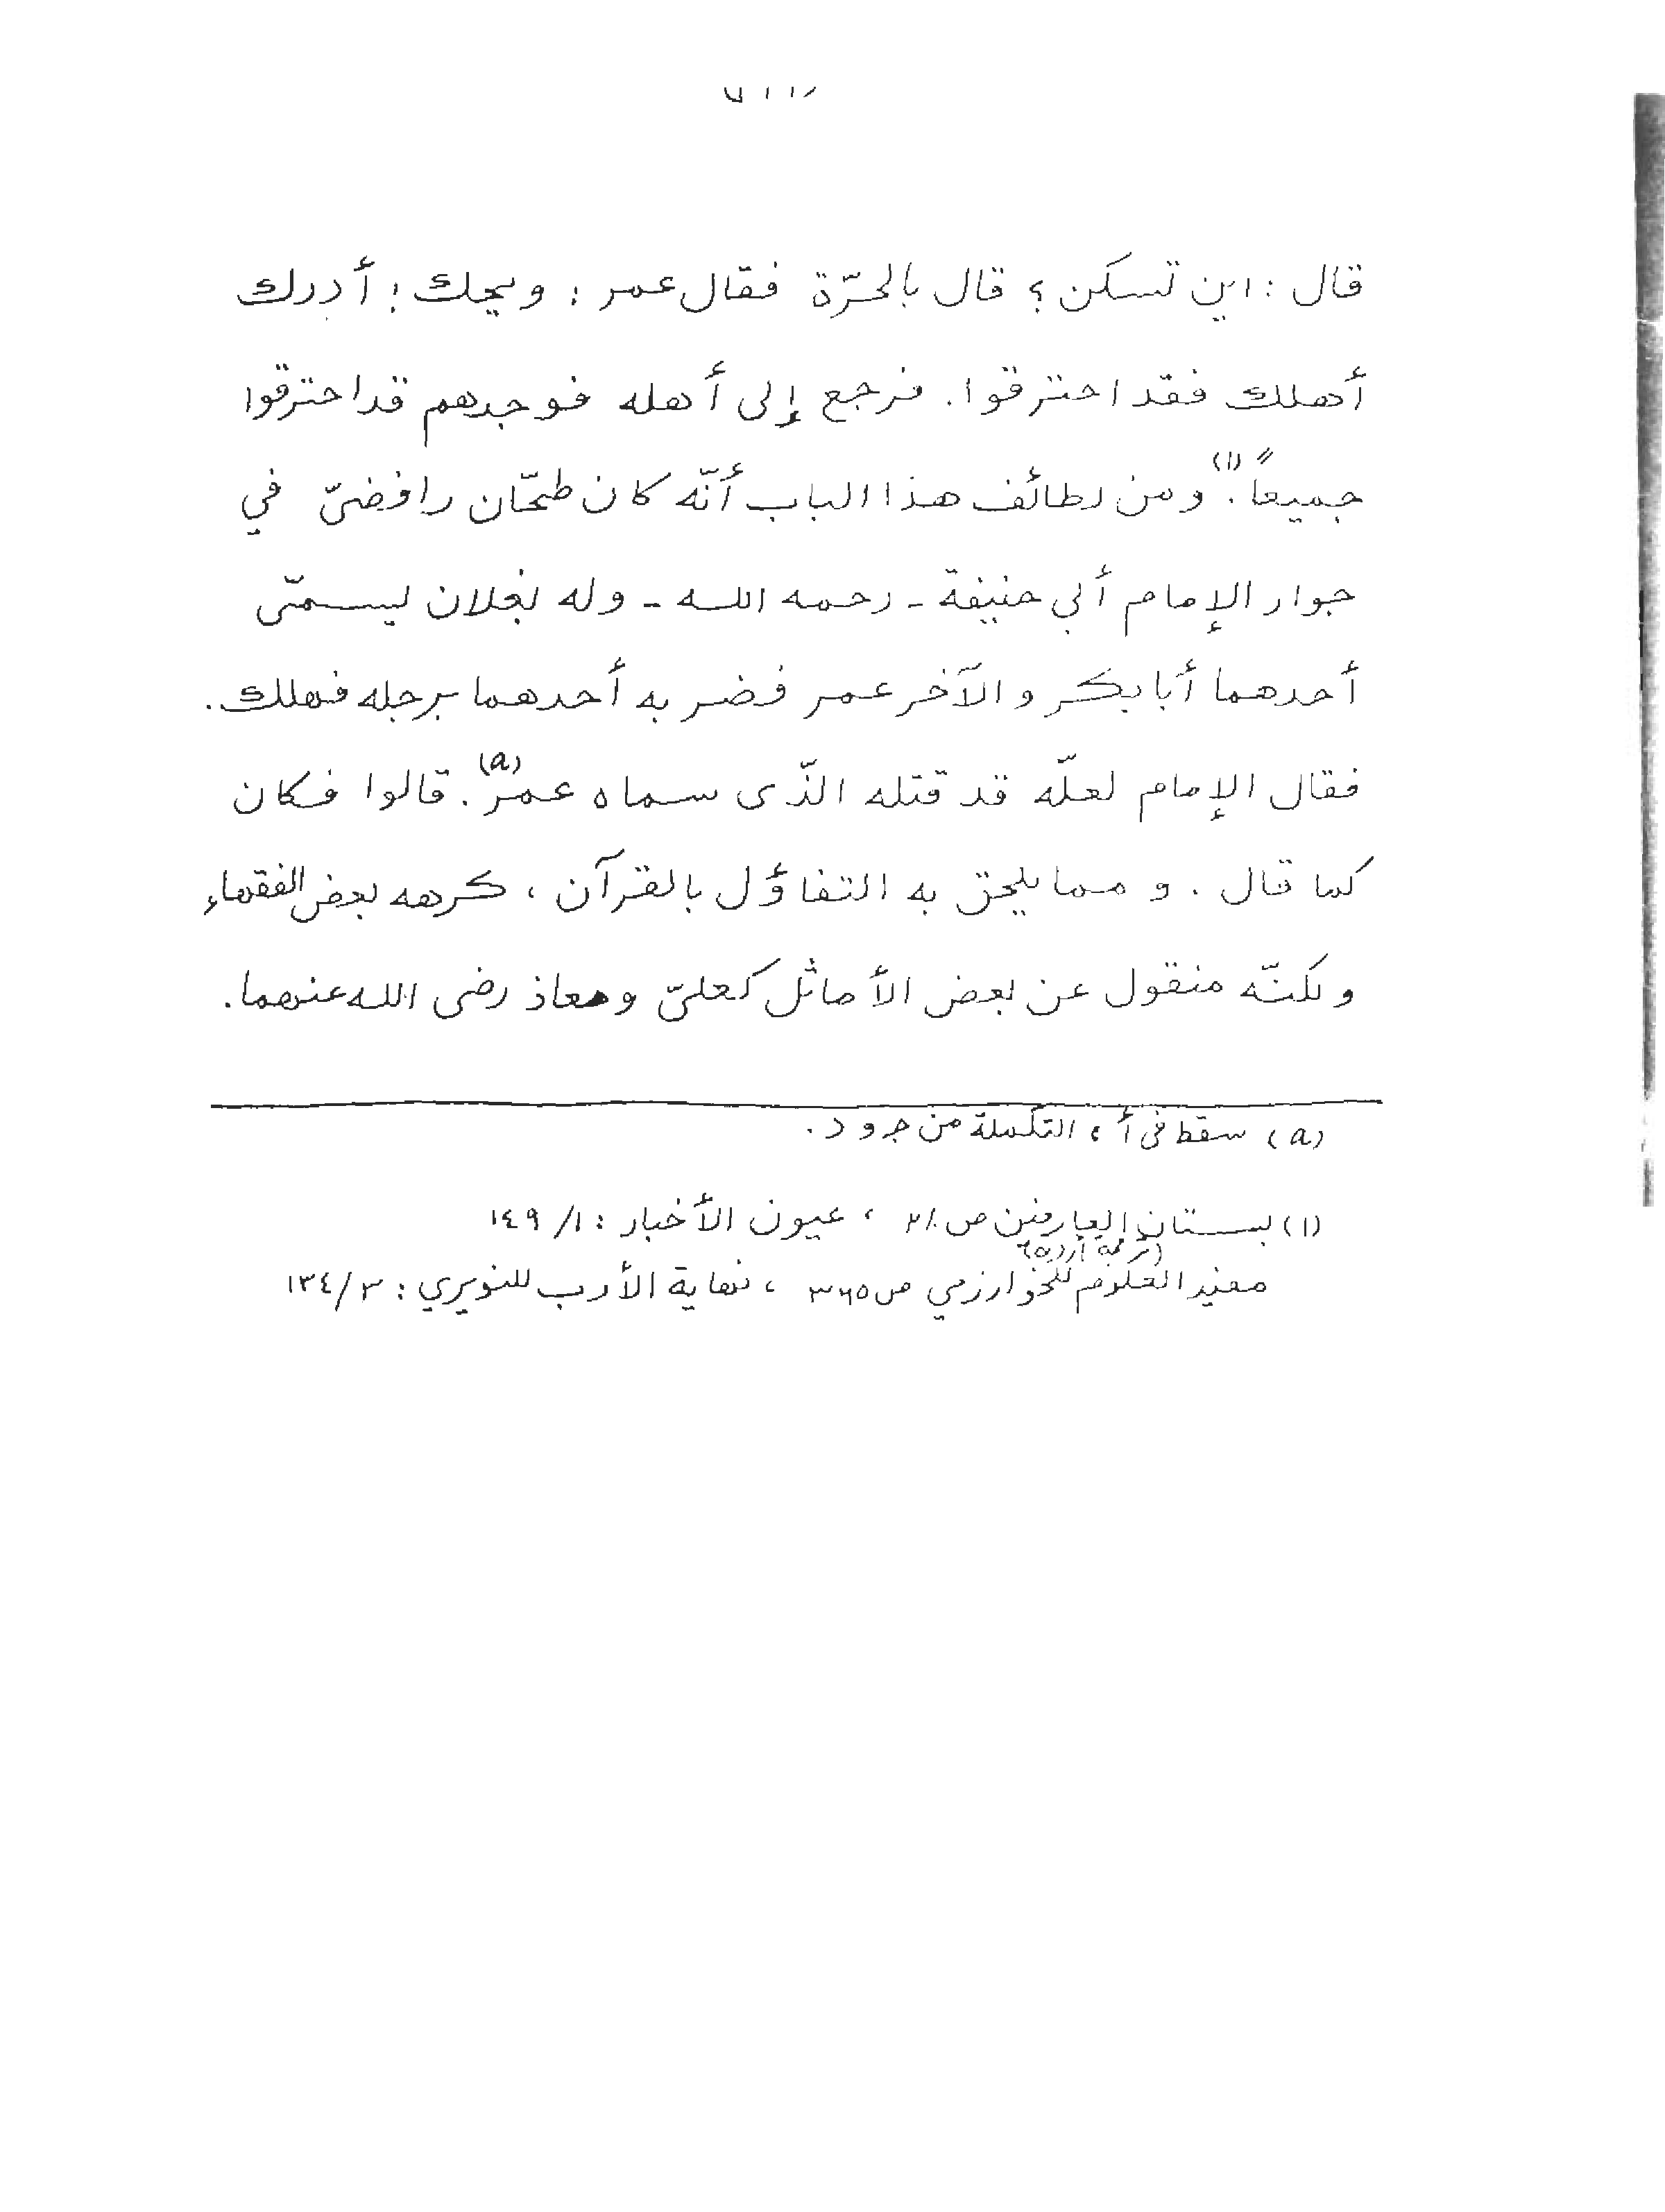 قال : اين تسكن ؟ قال بالحرّة فقال عمر : ويحك ! أدرك
أهلك فقد احترقوا. فرجع إلى أهله فوجدهم قد احترقوا
جميعاً".(١) ومن لطائف هذا الباب أنّه كان طحّان رافضيّ في
جوار الإمام أبي حنيفة - رحمه الله - وله بغلان يسمّى
أحدهما أبا بكر والآخر عمر فضربه أحدهما برجله فهلك.
فقال الإمام لعلّه قد قتله الذّى سماه عمر(a). قالوا فكان
كما قال . و مما يلحق به التفاؤل بالقرآن ، كرهه بعض الفقهاء
ولكنّه منقول عن بعض الأماثل كعليّ ومعاذ رضى الله عنهما.
(a) سقط فى أ ، التكملة من ج و د .
(١) بستان العارفين ص ، عيون الأخبار : ١/ ١٤٩
(ترجمة أردية)
مفيد العلوم للخوارزمي ص ٣٦٥ ، نهاية الأرب للنويري : ٣/ ١٣٤